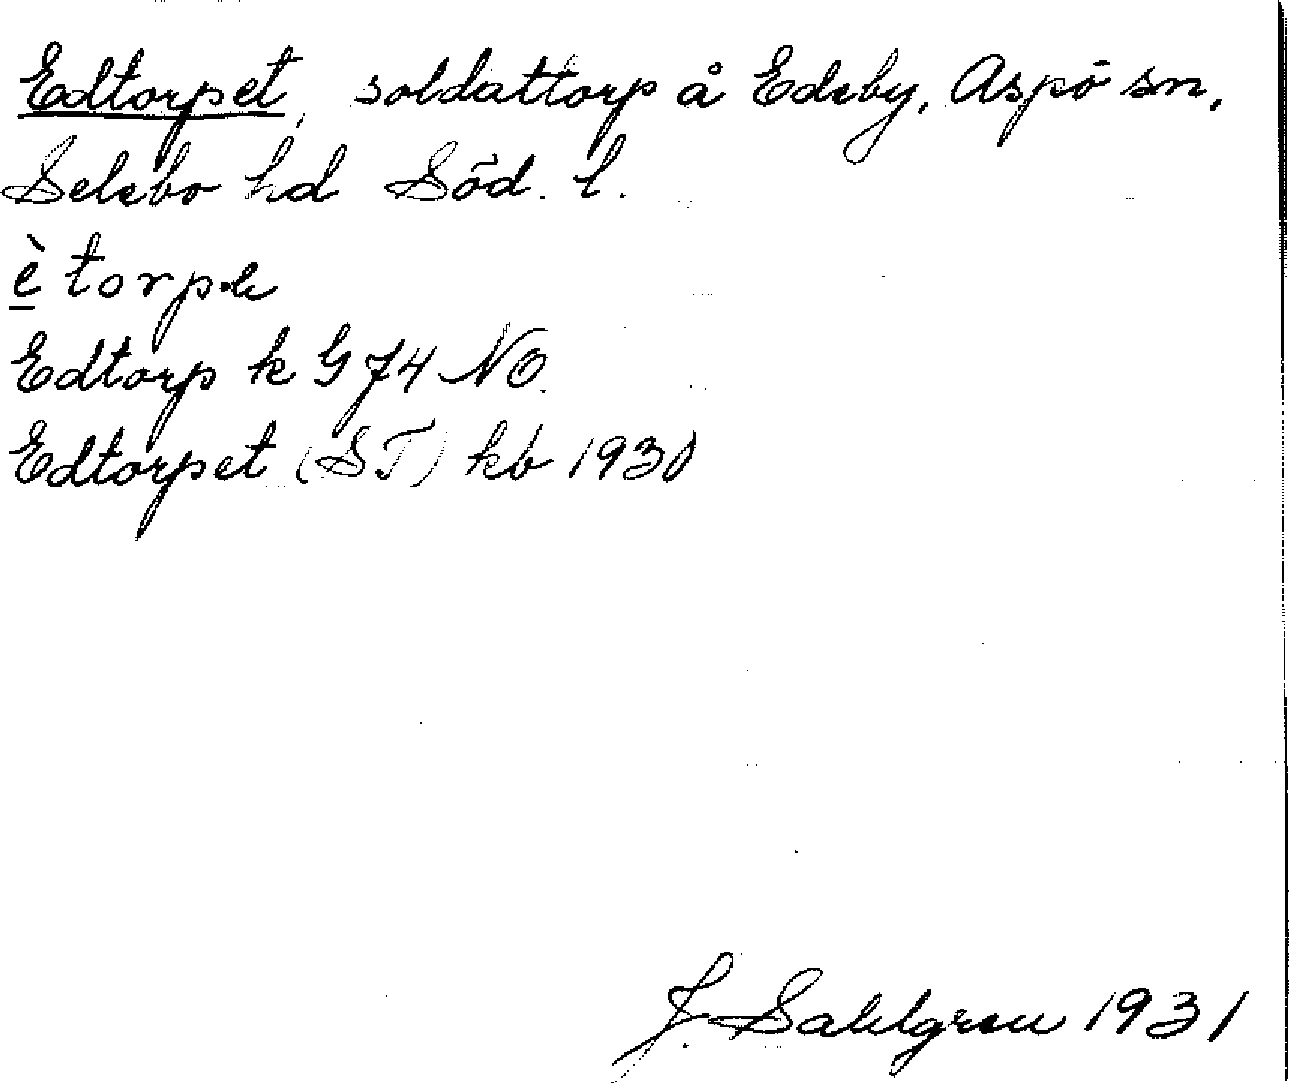 Edtorpet, soldattorp å Edeby, Aspö sn,
Selebo hd Söd. l.
è torpe
Edtorp k G 74 NO
Edtorpet (ST) kb 1930
J. Sahlgren 1931